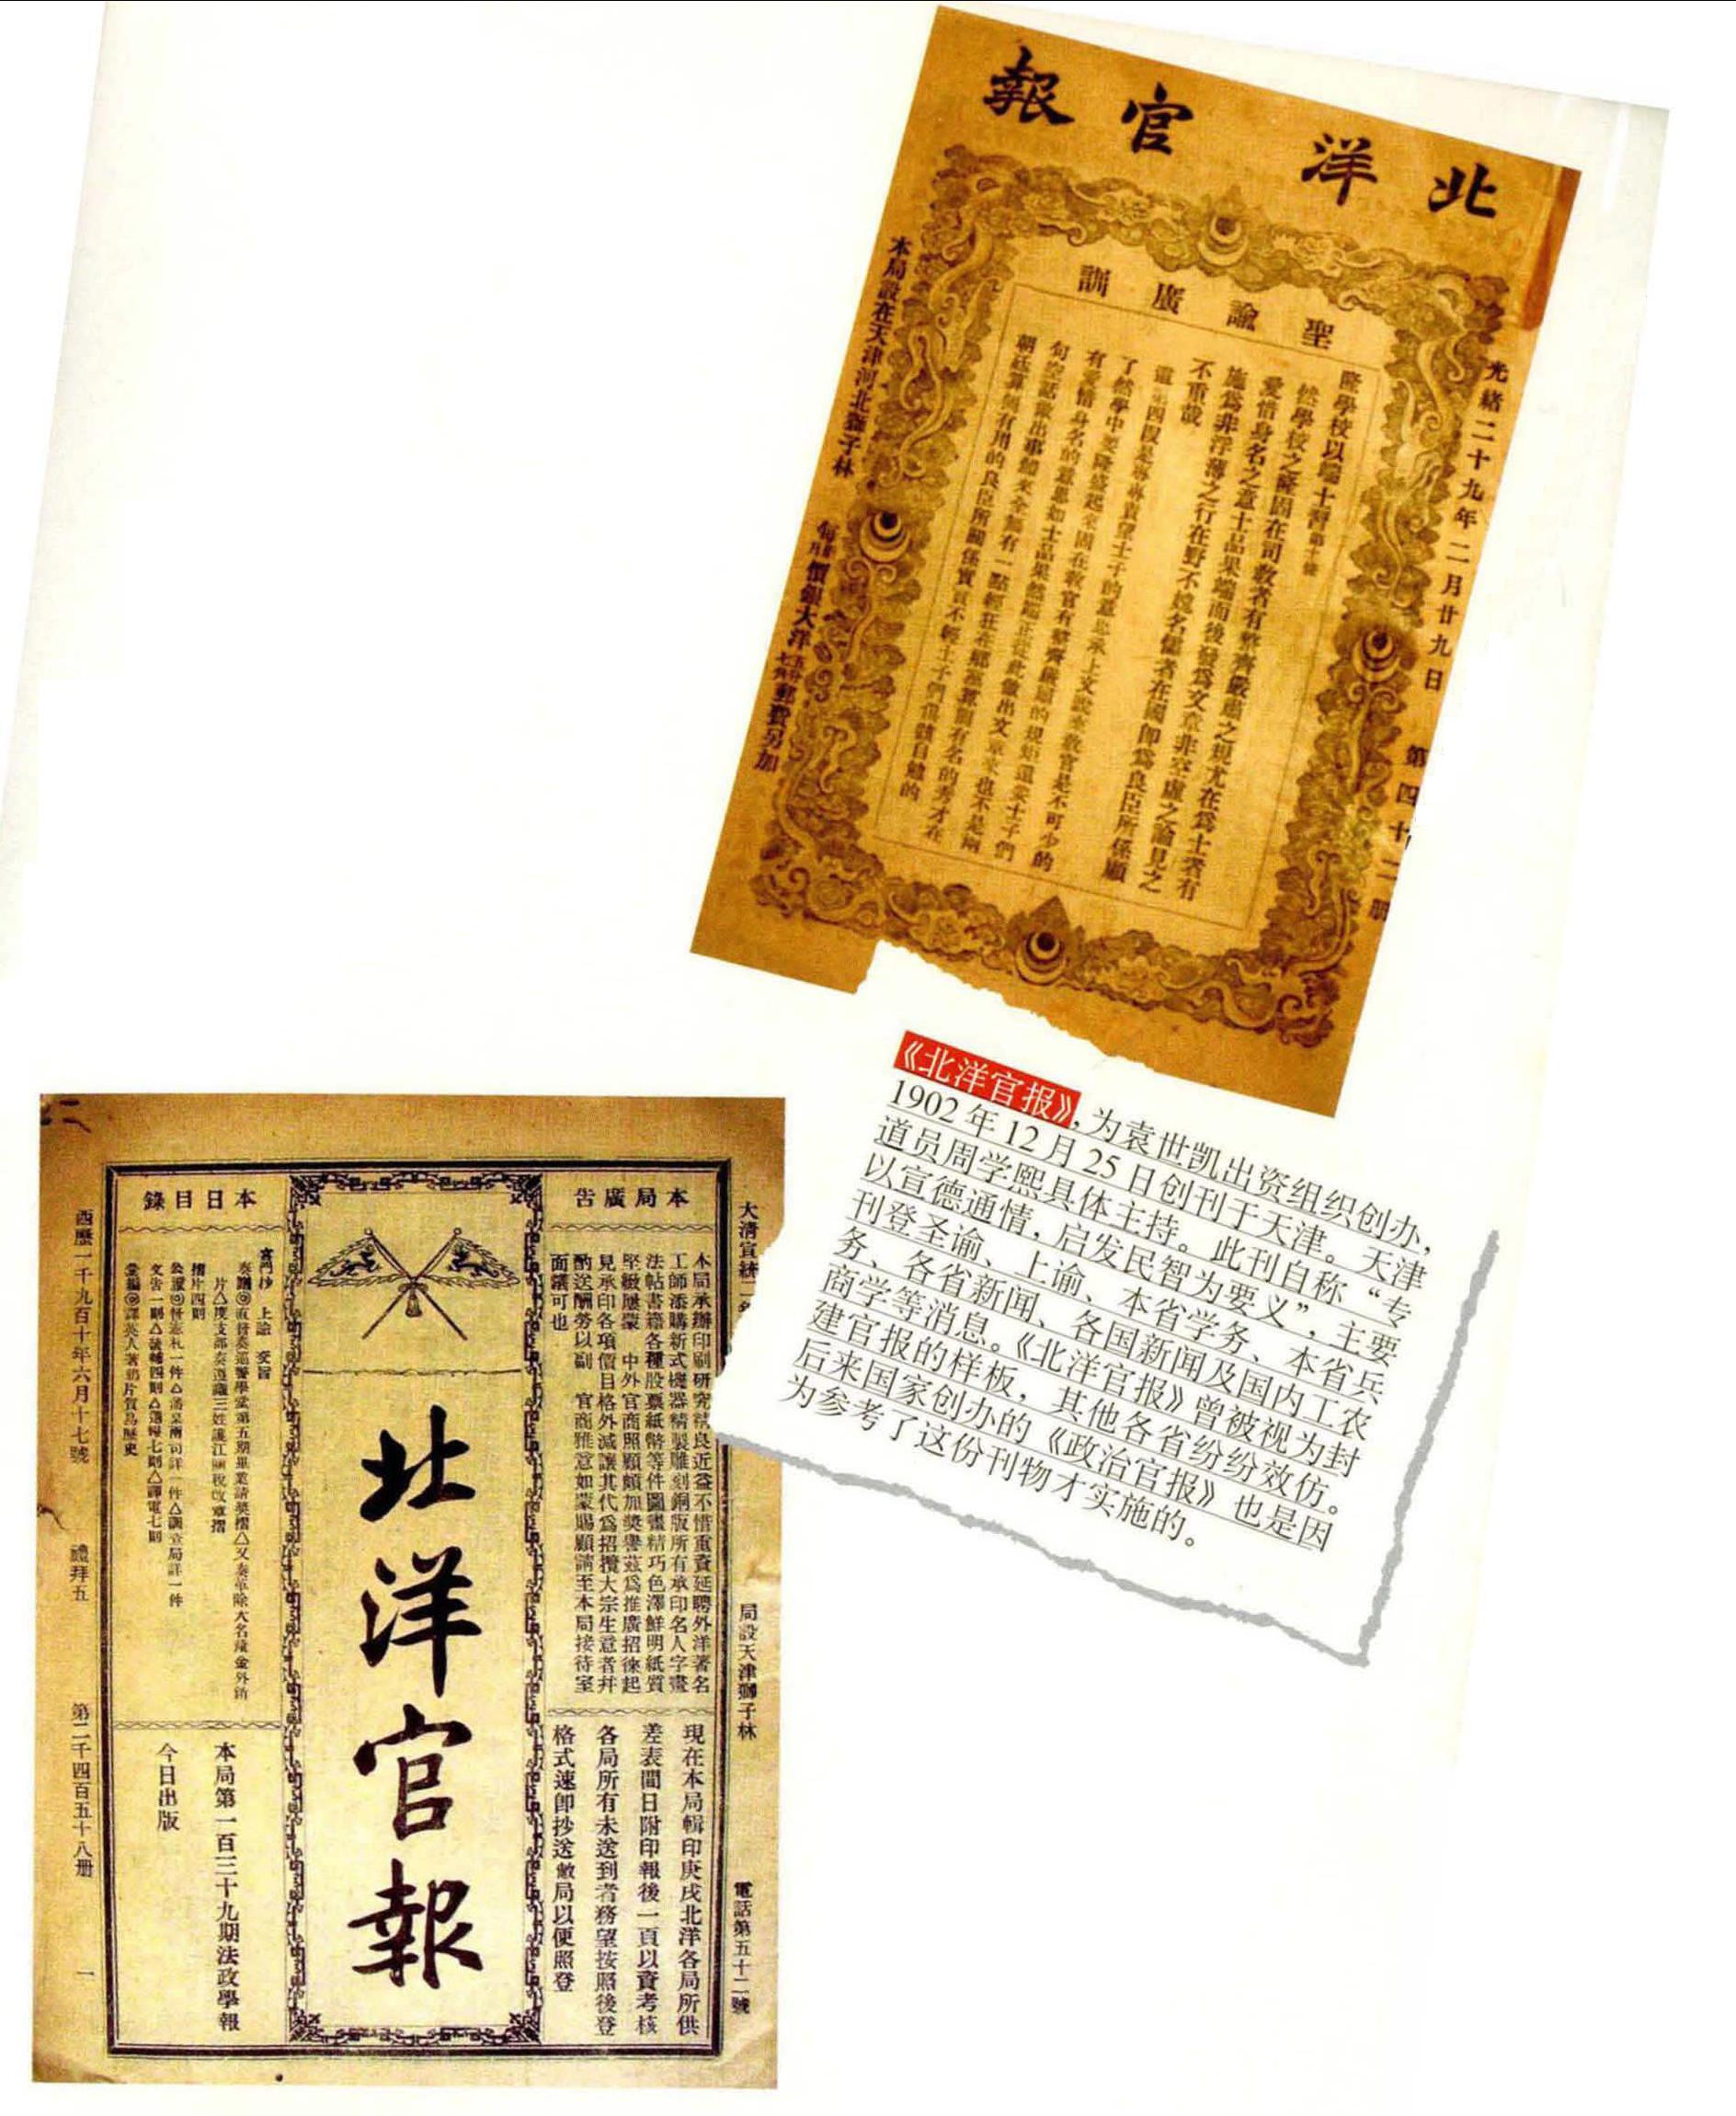 北洋官報
光緒二十九年二月廿九日
第四十二册
聖諭廣訓
隆學校以端士習第十條
然學校之隆固在司教者有整齊嚴肅之規尤在爲士者有
愛惜身名之意士品果端而後發爲文章非空虛之論見之
施爲非浮薄之行在野不媿名儒者在國即爲良臣所係顧
不重哉
了然學中要隆盛起來固在教官有整齊嚴肅的規矩還要士子們
本局設在天津河北獅子林
價銀大洋
郵費另加
《北洋官报》, 为袁世凯出资组织创办,
1902年12月25日创刊于天津。天津
道员周学熙具体主持。此刊自称“专
以宣德通情，启发民智为要义”，主要
刊登圣谕、上谕、本省学务、本省兵
务、各省新闻、各国新闻及国内工农
商学等消息。《北洋官报》曾被视为封
建官报的样板，其他各省纷纷效仿。
后来国家创办的《政治官报》也是因
为参考了这份刊物才实施的。
大清宣統二年
局設天津獅子林
電話第五十二號
本局廣告
本局承辦印刷研究精良近益不惜重資延聘外洋著名
工師添購新式機器精製雕刻銅版所有承印名人字畫
法帖書籍各種股票紙幣等件圖畫精巧色澤鮮明紙質
堅緻屢蒙 中外官商照顧頗加奬譽茲爲推廣招徠起
見承印各項價目格外減讓其代爲招攬大宗生意者幷
酌送酬勞以副 官商雅意如蒙賜顧請至本局接待室
面議可也
現在本局輯印庚戌北洋各局所供
差表間日附印報後一頁以資考核
各局所有未送到者務望按照後登
格式速卽抄送敝局以便照登
北洋官報
本日目錄
宮門抄 上諭 交旨
摺片四則
本局第一百三十九期法政學報
今日出版
西歷一千九百十年六月十七號
禮拜五
第二千四百五十八册
一